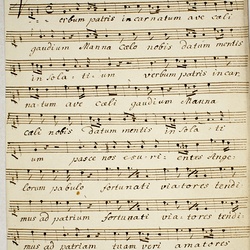 erbum patris in carnatum ave cæli
gaudium Manna cælo nobis datum mentis
in sola ti um verbum patris incar
na tum ave cæli gaudium Manna
cæli nobis datum mentis in sola ti
um pasce nos e su ri entes Ange
lorum pabulo fortunati viatores tendi
mus ad patrium fortunati via tores tendi
mus ad patriam tuam veri amatores